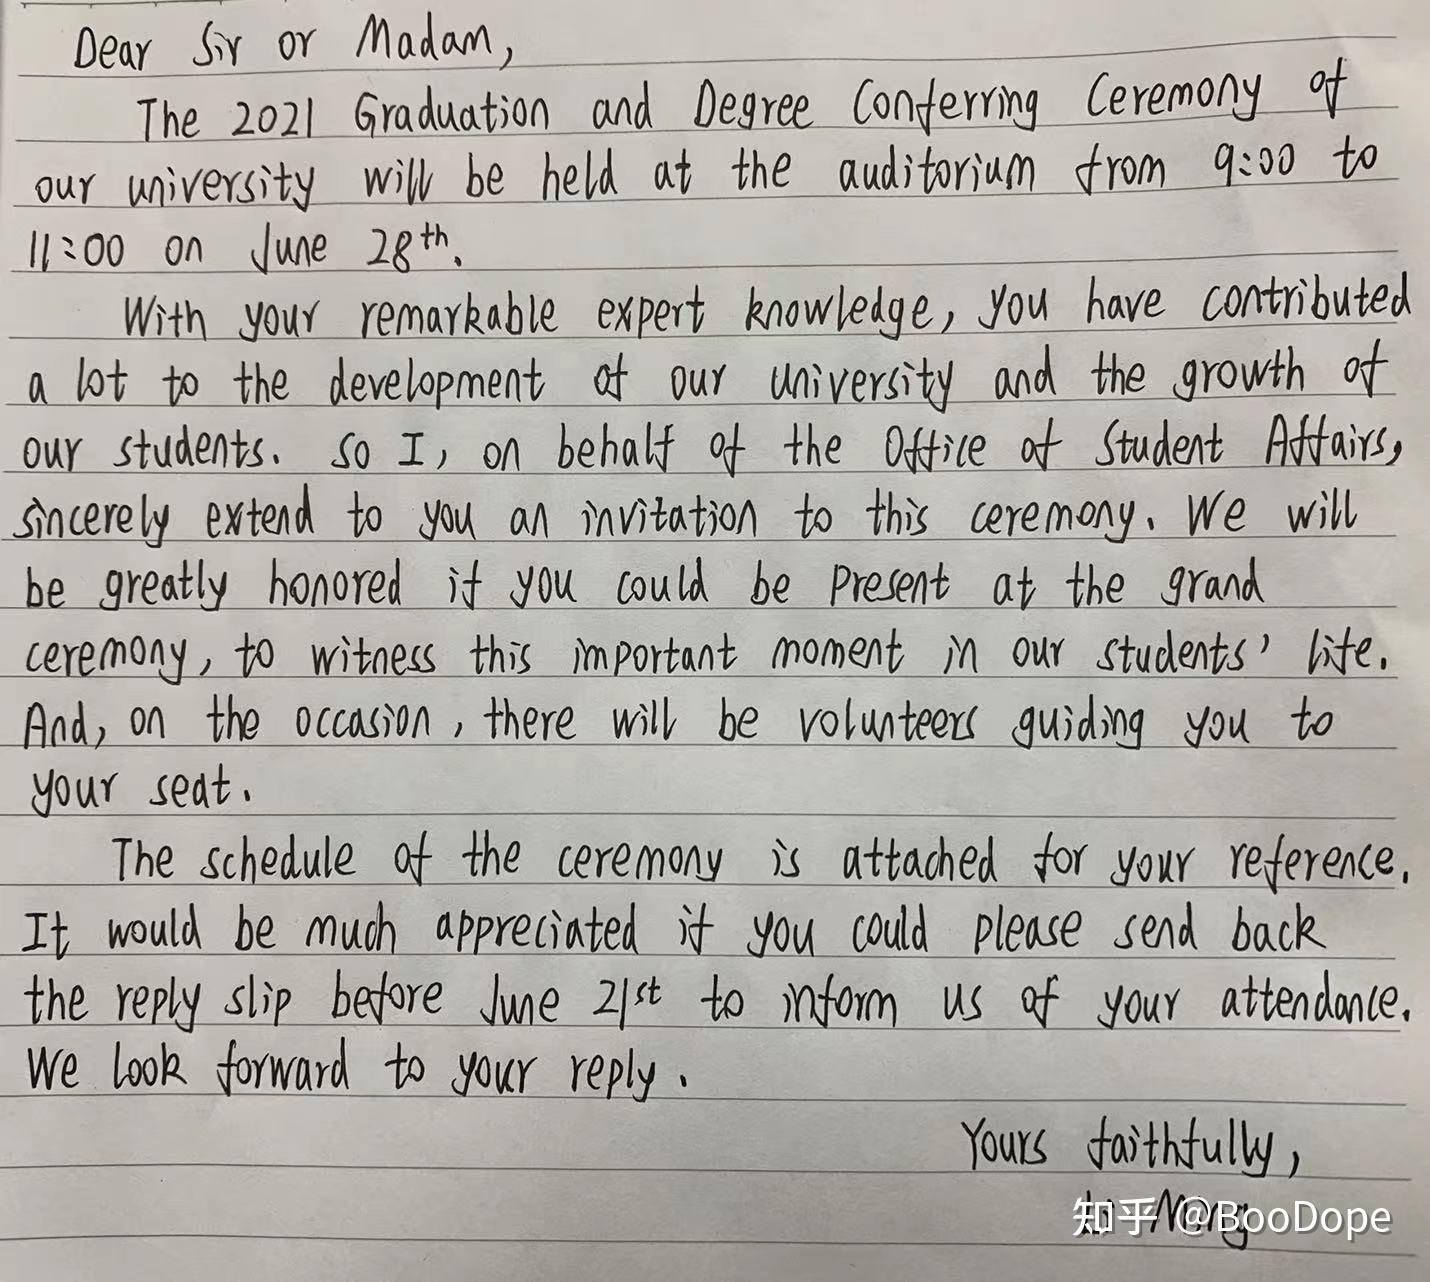 Dear Sir or Madam,
The 2021 Graduation and Degree Conferring Ceremony of
our university will be held at the auditorium from 9:00 to
11:00 on June 28th.
With your remarkable expert knowledge, you have contributed
a lot to the development of our university and the growth of
our students. So I, on behalf of the Office of Student Affairs,
sincerely extend to you an invitation to this ceremony. We will
be greatly honored if you could be present at the grand
ceremony, to witness this important moment in our students' life.
And, on the occasion, there will be volunteers guiding you to
your seat.
The schedule of the ceremony is attached for your reference.
It would be much appreciated if you could please send back
the reply slip before June 21st to inform us of your attendance.
We look forward to your reply.
Yours faithfully,
知乎 @BooDope